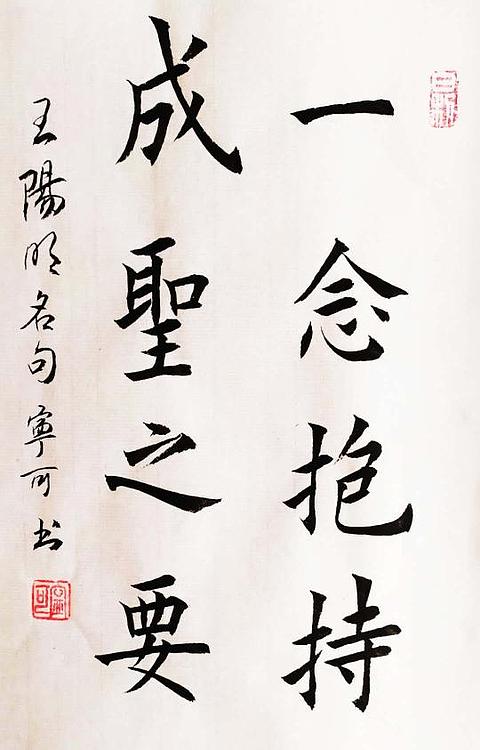 一念抱持
成聖之要
王陽明名句寧可书
寧可